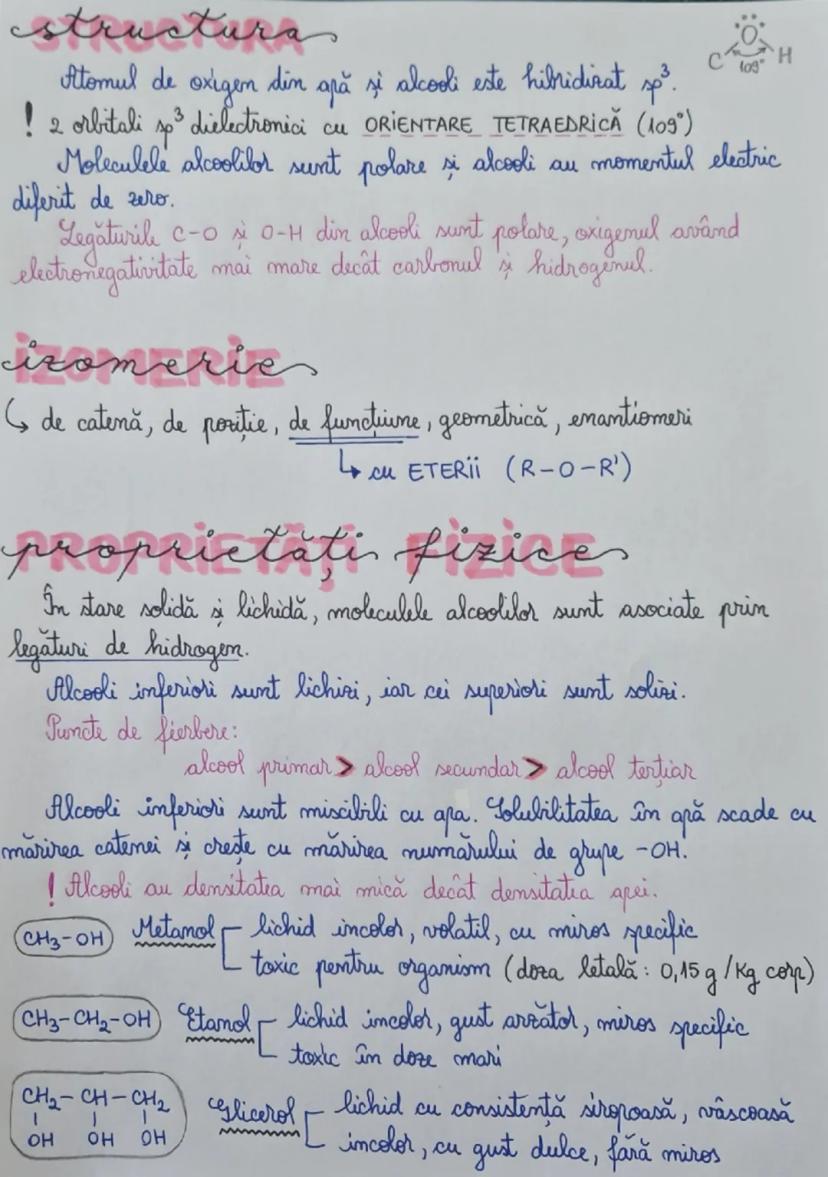 structura
STRUCTURA
O
C H
109°
Atomul de oxigen din apă și alcooli este hibridizat sp³.
! 2 orbitali sp³ dielectronici cu ORIENTARE TETRAEDRICĂ (109°)
Moleculele alcoolilor sunt polare și alcooli au momentul electric
diferit de zero.
Legăturile C-O și O-H din alcooli sunt polare, oxigenul având
electronegativitate mai mare decât carbonul și hidrogenul.
izomerie
IZOMERIE
↳ de catenă, de poziție, de funcțiune, geometrică, enantiomeri
↳ cu ETERII (R-O-R')
proprietăți fizice
PROPRIETĂȚI FIZICE
În stare solidă și lichidă, moleculele alcoolilor sunt asociate prin
legături de hidrogen.
Alcooli inferiori sunt lichizi, iar cei superiori sunt solizi.
Puncte de fierbere:
alcool primar > alcool secundar > alcool terțiar
Alcooli inferiori sunt miscibili cu apa. Solubilitatea în apă scade cu
mărirea catenei și crește cu mărirea numărului de grupe -OH.
! Alcooli au densitatea mai mică decât densitatea apei.
CH₃-OH Metanol lichid incolor, volatil, cu miros specific
toxic pentru organism (doza letală: 0,15 g/Kg corp)
CH₃-CH₂-OH Etanol lichid incolor, gust arzător, miros specific
toxic în doze mari
CH₂-CH-CH₂ Glicerol lichid cu consistență siropoasă, vâscoasă
OH OH OH incolor, cu gust dulce, fără miros